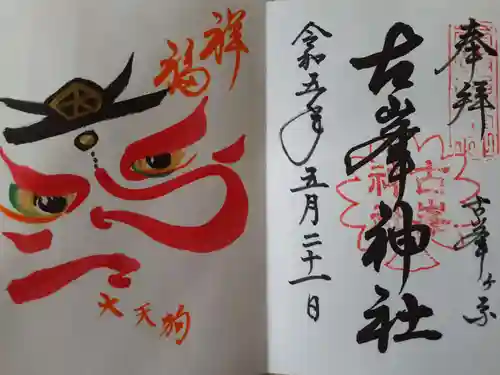 奉拝
古峯ヶ原
古峯神社
古峯神社
令和五年五月二十一日
祥
福
大天狗